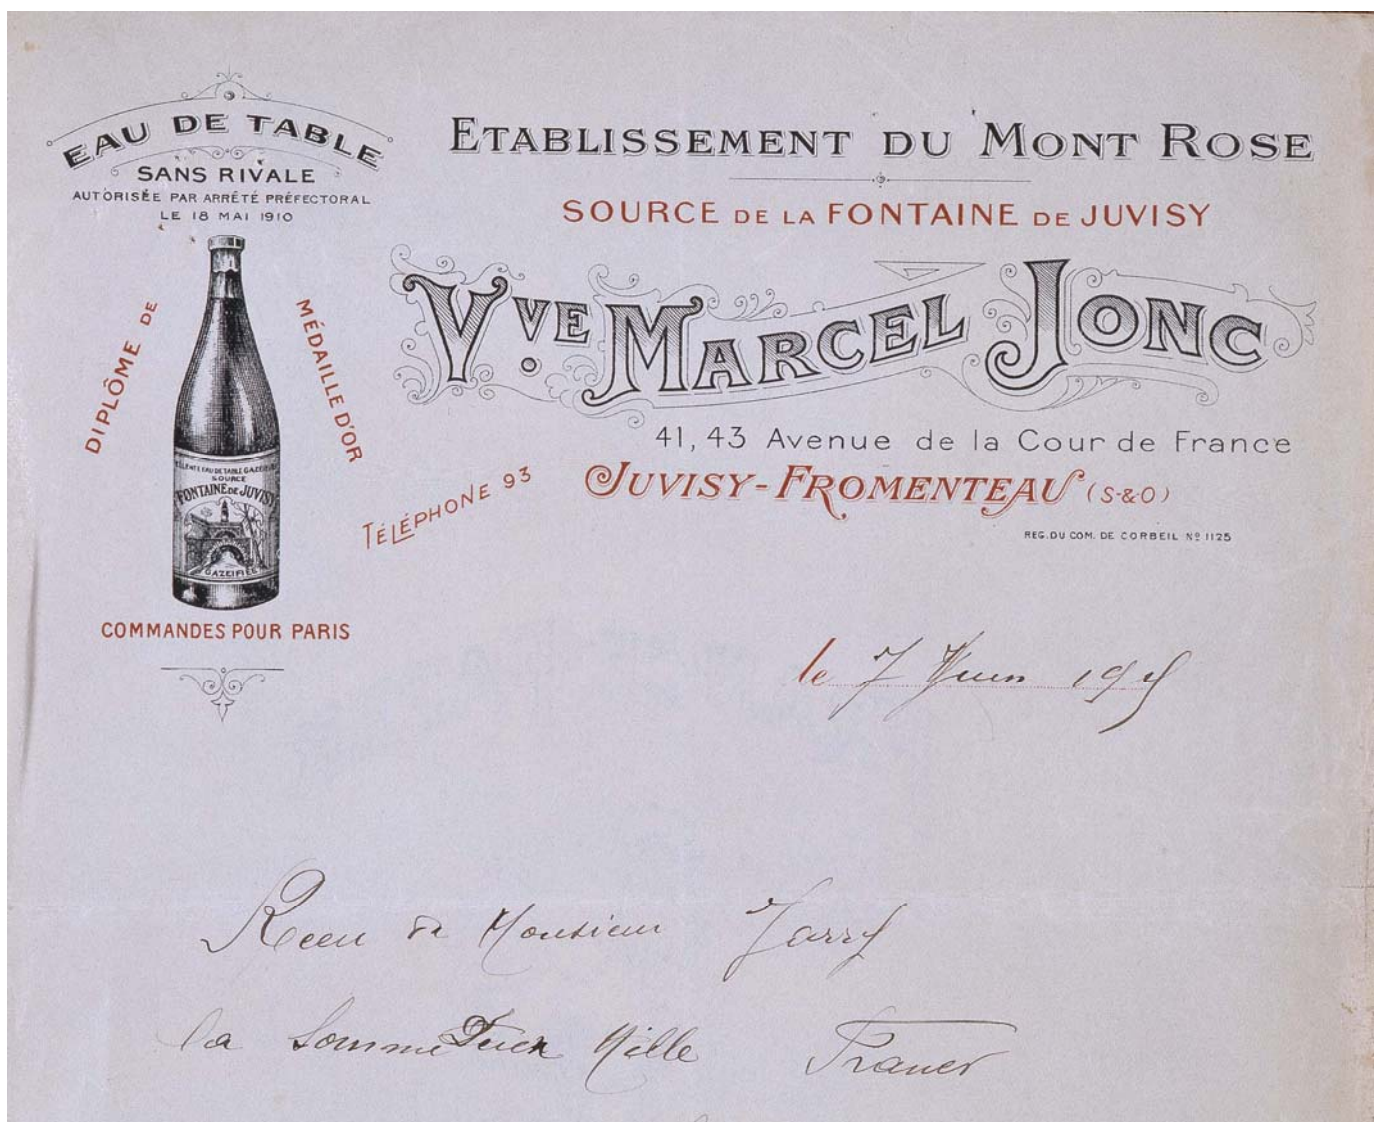 EAU DE TABLE
SANS RIVALE
AUTORISÉE PAR ARRÊTÉ PRÉFECTORAL
LE 18 MAI 1910
DIPLÔME DE
MÉDAILLE D'OR
EAU DE TABLE GAZEIFIÉE
SOURCE
FONTAINE DE JUVISY
GAZEIFIÉE
COMMANDES POUR PARIS
ETABLISSEMENT DU MONT ROSE
SOURCE DE LA FONTAINE DE JUVISY
VVE MARCEL JONC
41, 43 Avenue de la Cour de France
TÉLÉPHONE 93
JUVISY-FROMENTEAU (S-&O)
REG. DU COM. DE CORBEIL Nº 1125
le 7 Juin
Recu de Monsieur Jarry
la somme Deux Mille Francs